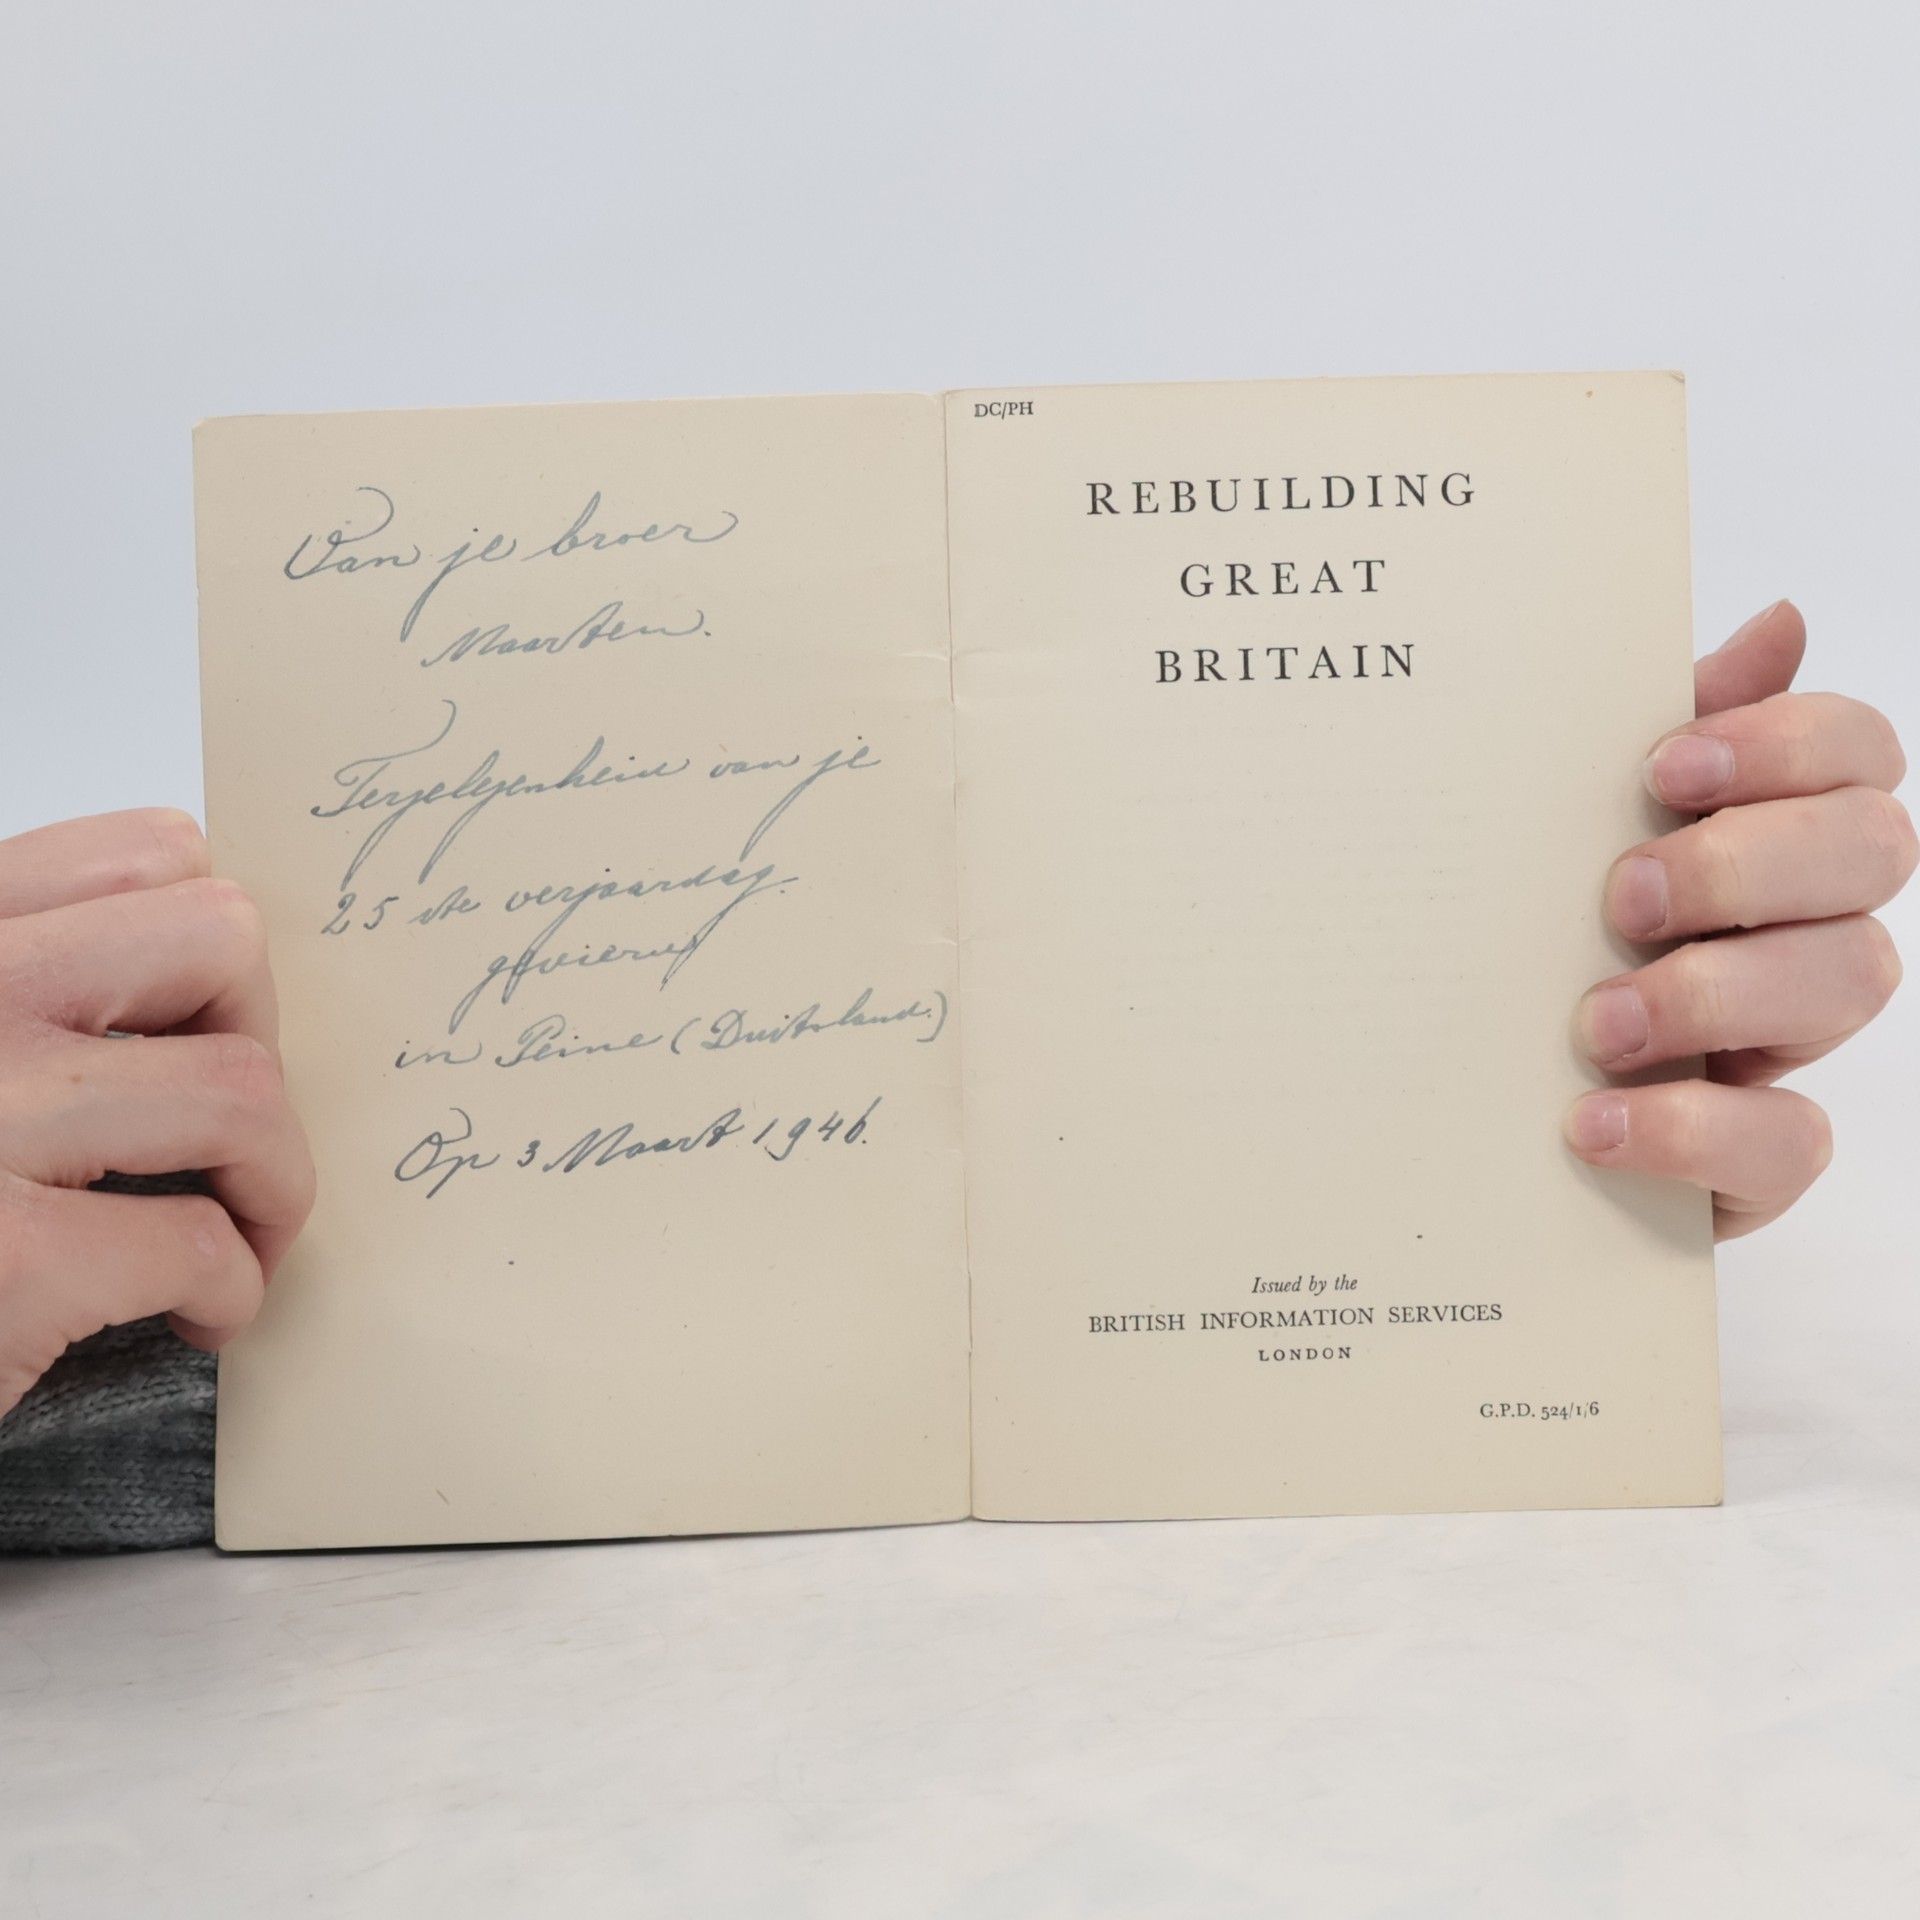 Van je broer
Maarten.
Tergelegenheid van je
25 ste verjaardag.
gevierd
in Peine (Duitsland.)
Op 3 Maart 1946.
DC/PH
REBUILDING
GREAT
BRITAIN
Issued by the
BRITISH INFORMATION SERVICES
LONDON
G.P.D. 524/1/6